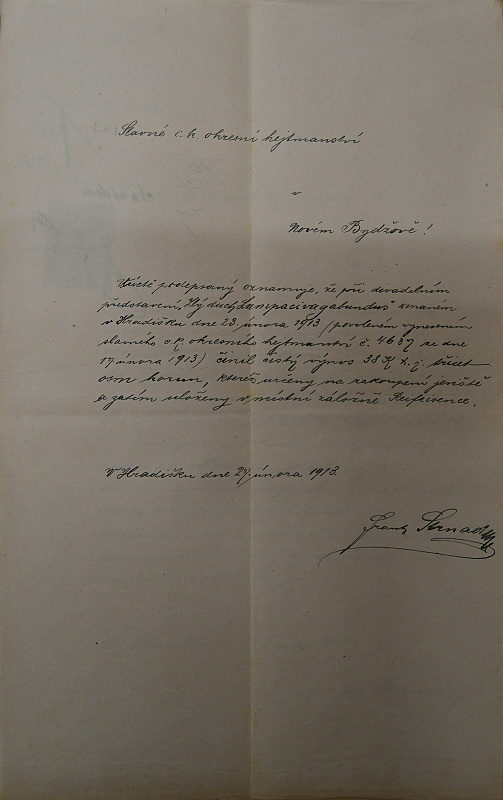 Slavné c. k. okresní hejtmanství
v
Novém Bydžově!
Uctivě podepsaný oznamuje, že při divadelním
představení, "Zlý duch Lumpacivagabundus" konaném
v Hradišku dne 23. února 1913 /povoleném vynesením
slavného c. k. okresního hejtmanství č. 4637 ze dne
17. února 1913/ činil čistý výnos 38 K t. j. třicet
osm korun, kteréž určeny na zakoupení jeviště
a zatím uloženy v místní záložně Reifeisence.
V Hradišku dne 27. února 1913.
Frant. Strnad